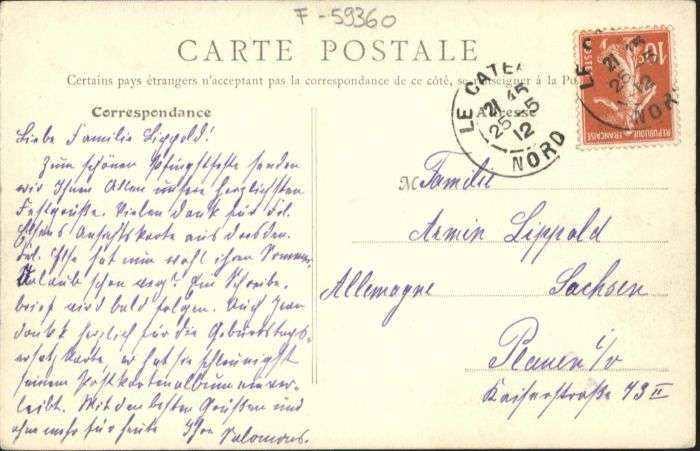 F-59360
CARTE POSTALE
Certains pays étrangers n'acceptant pas la correspondance de ce côté, se renseigner à la Po
Correspondance
Adresse
LE CATEAU
21 15
25 -5
12
NORD
10c
POSTES
REPUBLIQUE FRANÇAISE
LE
21 15
25 -5
12
NORD
Liebe Familie Lippold!
Zum schönen Pfingstfeste senden
wir Ihnen Allen unsere herzlichsten
Festgrüße. Vielen Dank für Frl.
Ilses Ansichtskarte aus Dresden.
Frl. Ilse hat nun wohl ihren Sommer-
Urlaub schon weg? Ein Schreibe-
brief wird bald folgen. Auch Jean
dankt herzlich für die Geburtstags-
ersatzkarte, er hat sie schleunigst
seinem Postkartenalbum einver-
leibt. Mit den besten Grüßen und
ohne mehr für heute Ihre Salomons.
M Familie
Armin Lippold
Allemagne Sachsen
Plauen i/V
Kaiserstraße 73 II